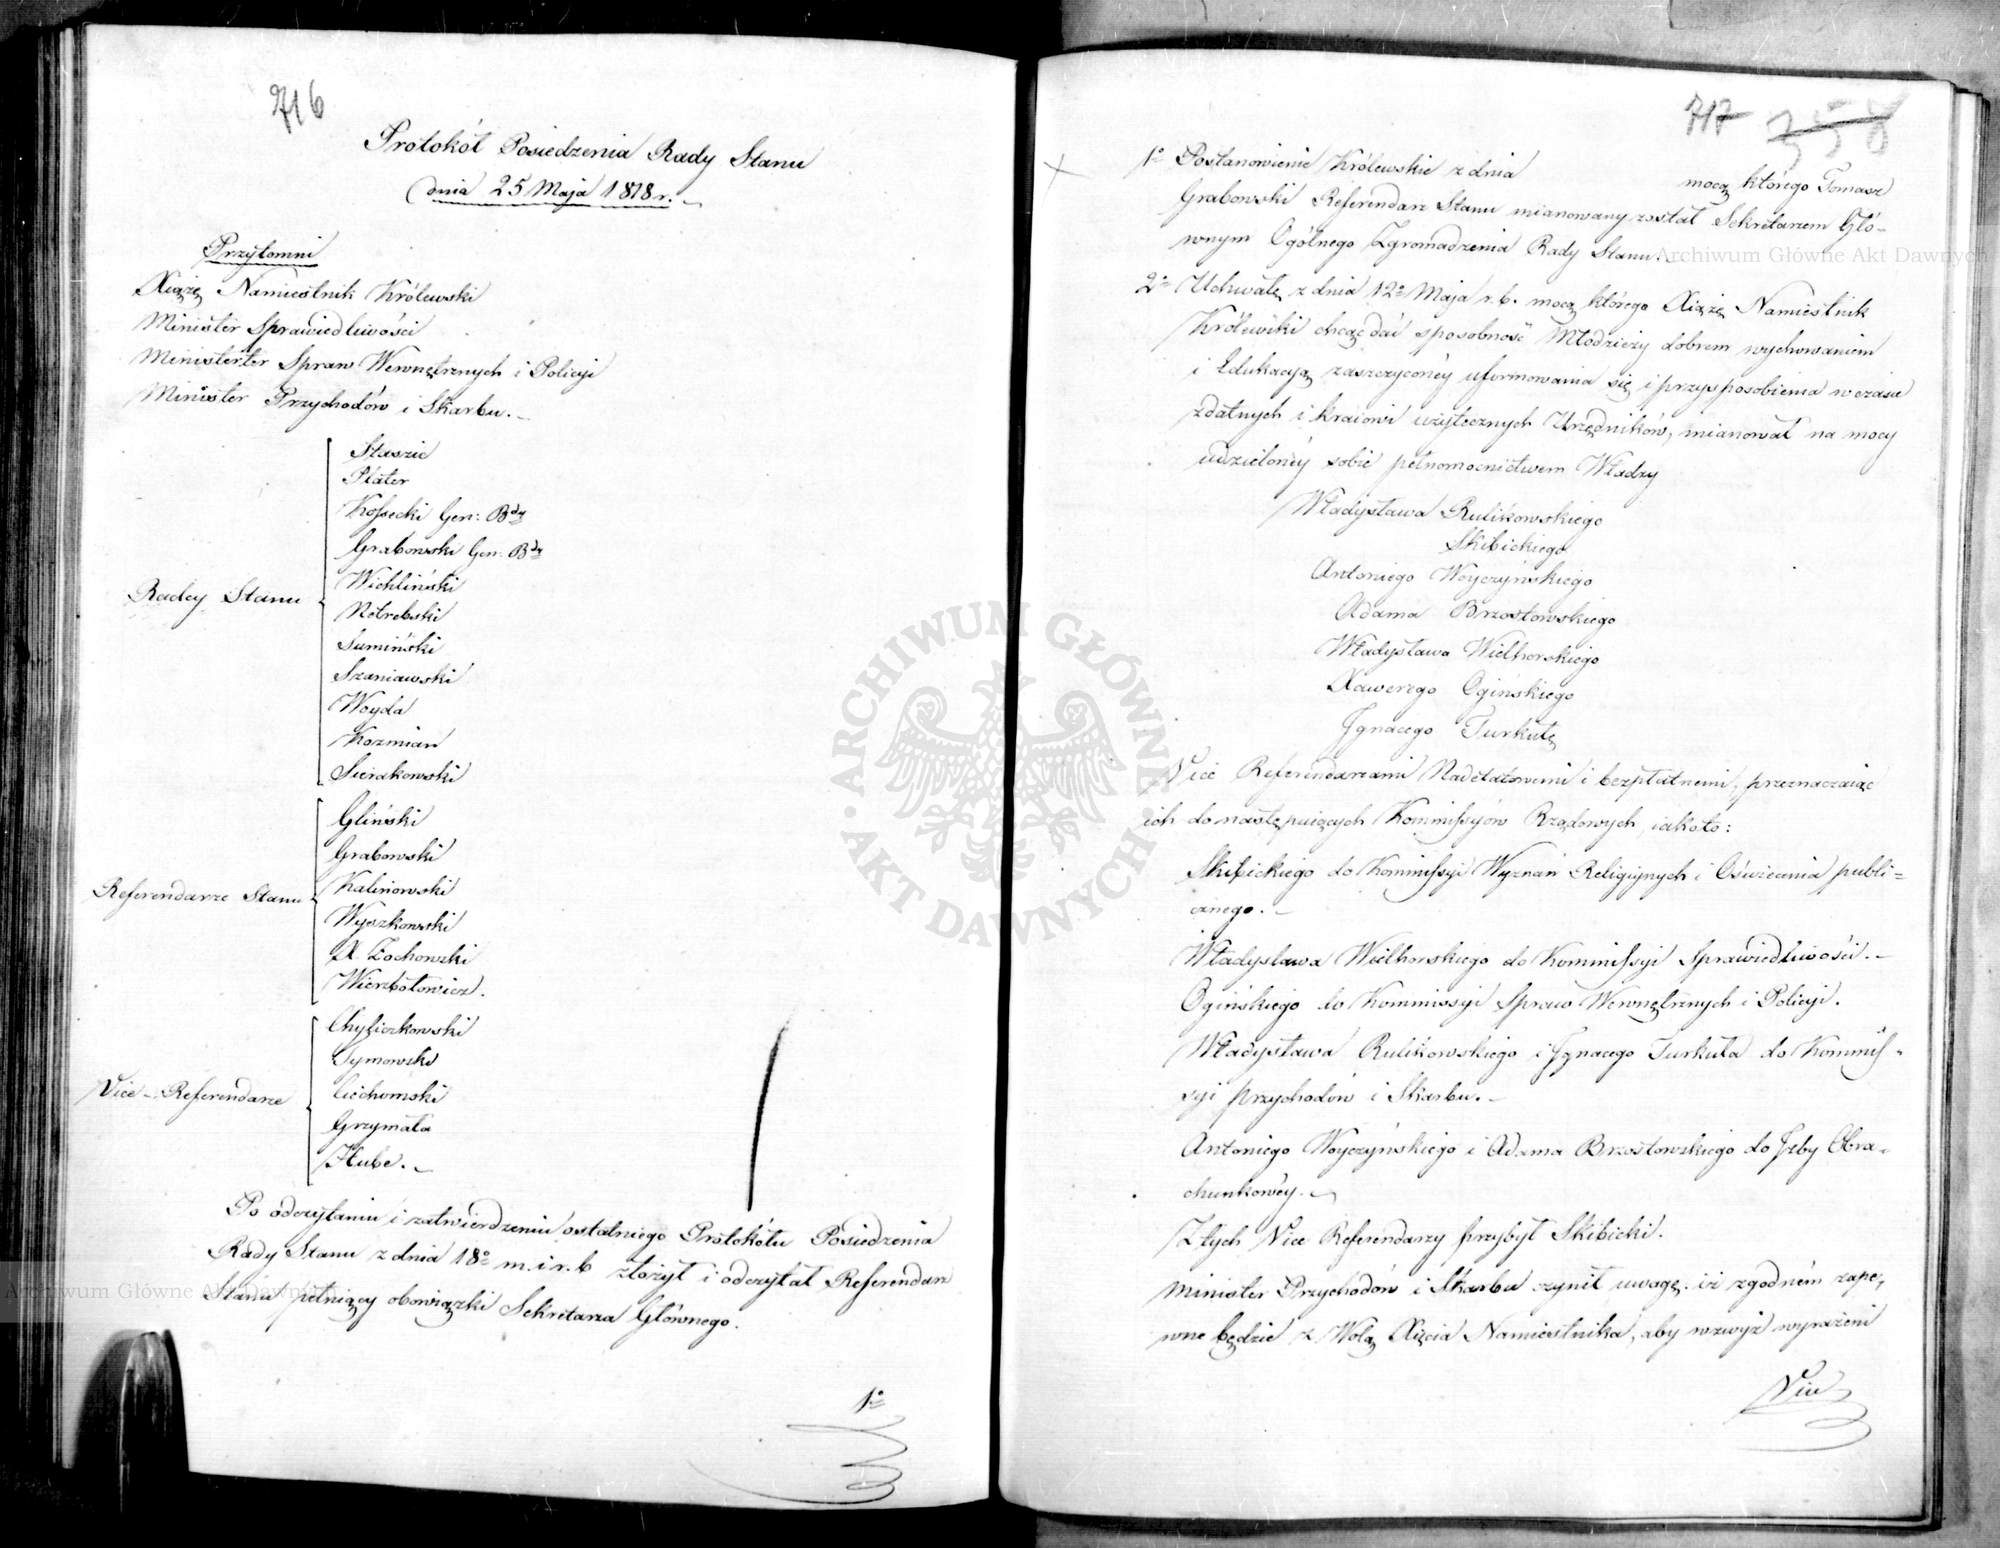 716
Protokół Posiedzenia Rady Stanu
dnia 25 Maja 1818 r.
Przytomni
Xiążę Namiestnik Królewski
Minister Sprawiedliwości
Ministerter Spraw Wewnętrznych i Policyi
Minister Przychodów i Skarbu.
Radcy Stanu
Staszic
Plater
Kossecki Gen: Bdy
Grabowski Gen: Bdy
Wichliński
Notrebski
Sumiński
Szaniawski
Woyda
Kozmian
Sierakowski
Referendarze Stanu
Gliński
Grabowski
Kalinowski
Wyszkowski
X. Żochowski
Wierzbołowicz.
Vice-Referendarze
Chyliczkowski
Tymowski
Ciechomski
Grzymała
Hube.
Po odczytaniu i zatwierdzeniu ostatniego Protokółu Posiedzenia
Rady Stanu z dnia 18o m. i r. b złożył i odczytał Referendarz
Stanu pełniący obowiązki Sekretarza Głównego.
1o
717 358
1o Postanowienie Królewskie z dnia mocą którego Tomasz
Grabowski Referendarz Stanu mianowany został Sekretarzem Głó=
wnym Ogólnego Zgromadzenia Rady Stanu.
2o Uchwałę z dnia 12o Maja r. b. mocą którego Xiążę Namiestnik
Królewski chcąc dać sposobność Młodzieży dobrem wychowaniem
i Edukacyą zaszczyconéy uformowania się i przysposobienia w czasie
zdatnych i kraiowi użytecznych Urzędników, mianował na mocy
udzielonéy sobie pełnomocnictwem Władzy
Władysława Rulikowskiego
Skibickiego
Antoniego Woyczyńskiego
Adama Brzostowskiego
Władysława Wielhorskiego
Xawerego Ogińskiego
Ignacego Turkułę
Vice Referendarzami Nadetatowemi i bezpłatnemi, przeznaczaiąc
ich do następuiących Kommissyów Rządowych, iakoto:
Skibickiego do Kommissyi Wyznań Religiynych i Oświecenia publi=
cznego.
Władysława Wielhorskiego do Kommissyi Sprawiedliwości.
Ogińskiego do Kommissyi Spraw Wewnętrznych i Policyi.
Władysława Rulikowskiego i Ignacego Turkuła do Kommis=
syi przychodów i Skarbu.
Antoniego Woyczyńskiego i Adama Brzostowskiego do Izby Obra=
chunkowéy.
Z tych Vice Referendarzy przybył Skibicki.
Minister Przychodów i Skarbu czynił uwagę iż zgodném zape=
wne będzie z Wolą Xięcia Namiestnika, aby wzwyż wyrażeni
Vice
ARCHIWUM GŁÓWNE AKT DAWNYCH
Archiwum Główne Akt Dawnych
Archiwum Główne Akt Dawnych